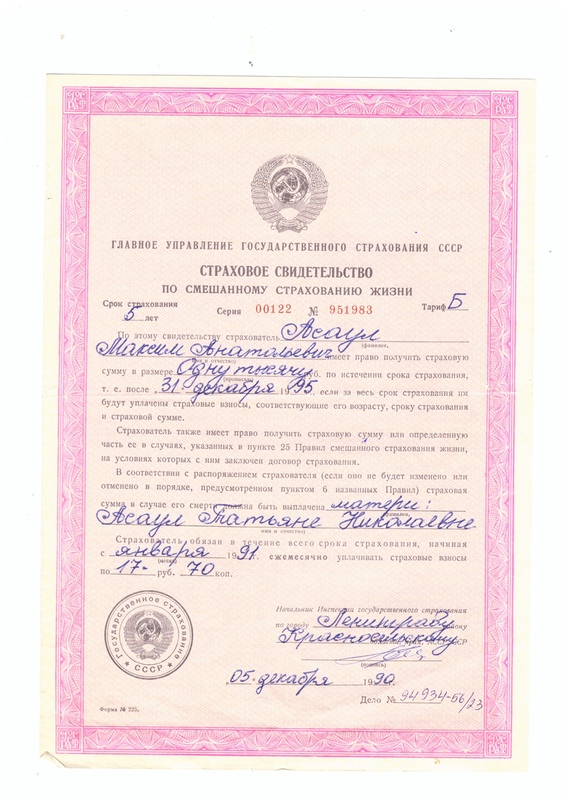 ГЛАВНОЕ УПРАВЛЕНИЕ ГОСУДАРСТВЕННОГО СТРАХОВАНИЯ СССР
СТРАХОВОЕ СВИДЕТЕЛЬСТВО
ПО СМЕШАННОМУ СТРАХОВАНИЮ ЖИЗНИ
Срок страхования
5 лет
Серия 00122 № 951983
Тариф Б
По этому свидетельству страхователь Асаул
(фамилия,
Максим Анатольевич имеет право получить страховую
имя и отчество)
сумму в размере Одну тысячу руб. по истечении срока страхования,
(прописью)
т. е. после „31" декабря 1995, если за весь срок страхования им
будут уплачены страховые взносы, соответствующие его возрасту, сроку страхования
и страховой сумме.
Страхователь также имеет право получить страховую сумму или определенную
часть ее в случаях, указанных в пункте 25 Правил смешанного страхования жизни,
на условиях которых с ним заключен договор страхования.
В соответствии с распоряжением страхователя (если оно не будет изменено или
отменено в порядке, предусмотренном пунктом 6 названных Правил) страховая
сумма в случае его смерти должна быть выплачена матери:
Асаул Татьяне Николаевне
имя и отчество)
Страхователь обязан в течение всего срока страхования, начиная
с января 1991. ежемесячно уплачивать страховые взносы
(месяц)
по 17- руб. 70 коп.
Начальник Инспекции государственного страхования
по городу Ленинграду
Красносельскому
(подпись)
„05" декабря 1990.
Дело № 94934-56/23
Государственное страхование
СССР
Форма № 225.